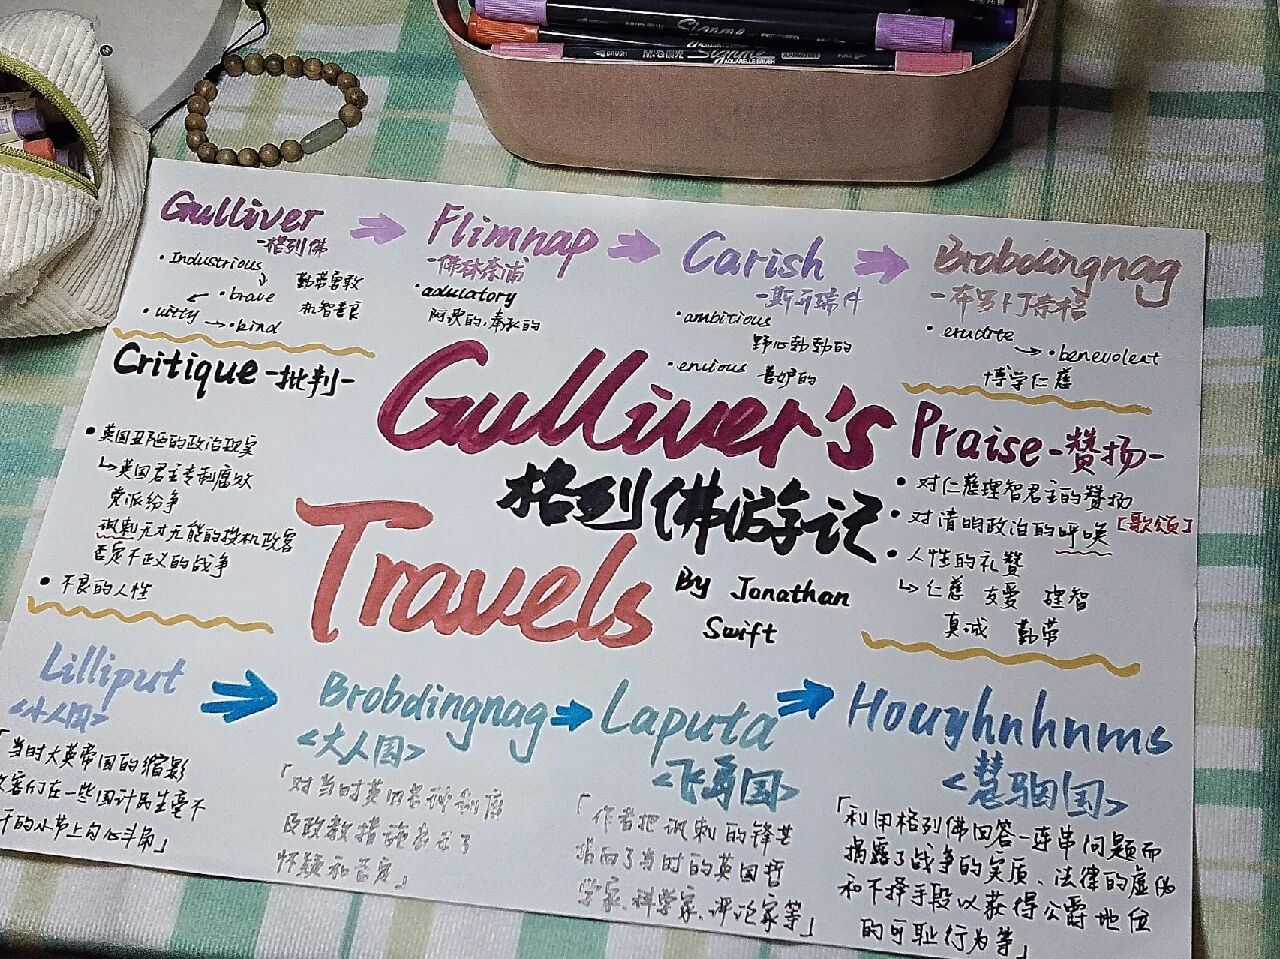 Gulliver
-格列佛
• Industrious
勤劳勇敢
• brave
机智善良
• witty
• kind
Flimnap
-佛林奈浦
• adulatory
阿谀的,奉承的
Carish
-斯开瑞什
• ambitious
野心勃勃的
• envious 善妒的
Brobdingnag
-布罗卜丁奈格
• erudite
• benevolent
博学仁慈
Critique -批判-
• 英国丑陋的政治现实
↳英国君主专制腐败
党派纷争
讽刺无才无能的投机政客
否定不正义的战争
• 不良的人性
Gulliver's
格列佛游记
Travels
By Jonathan
Swift
Praise -赞扬-
• 对仁慈理智君主的赞扬
• 对清明政治的呼唤 [歌颂]
• 人性的礼赞
↳仁慈 友爱 理智
真诚 勤劳
Lilliput
<小人国>
「当时大英帝国的缩影
政客们在一些国计民生毫不
干的小节上勾心斗角」
Brobdingnag
<大人国>
「对当时英国各种制度
及政教措施表示了
怀疑和否定」
Laputa
<飞岛国>
「作者把讽刺的锋芒
指向了当时的英国哲
学家、科学家、评论家等」
Houyhnhnms
<慧骃国>
「利用格列佛回答一连串问题而
揭露了战争的实质、法律的虚伪
和不择手段以获得公爵地位
的可耻行为等」